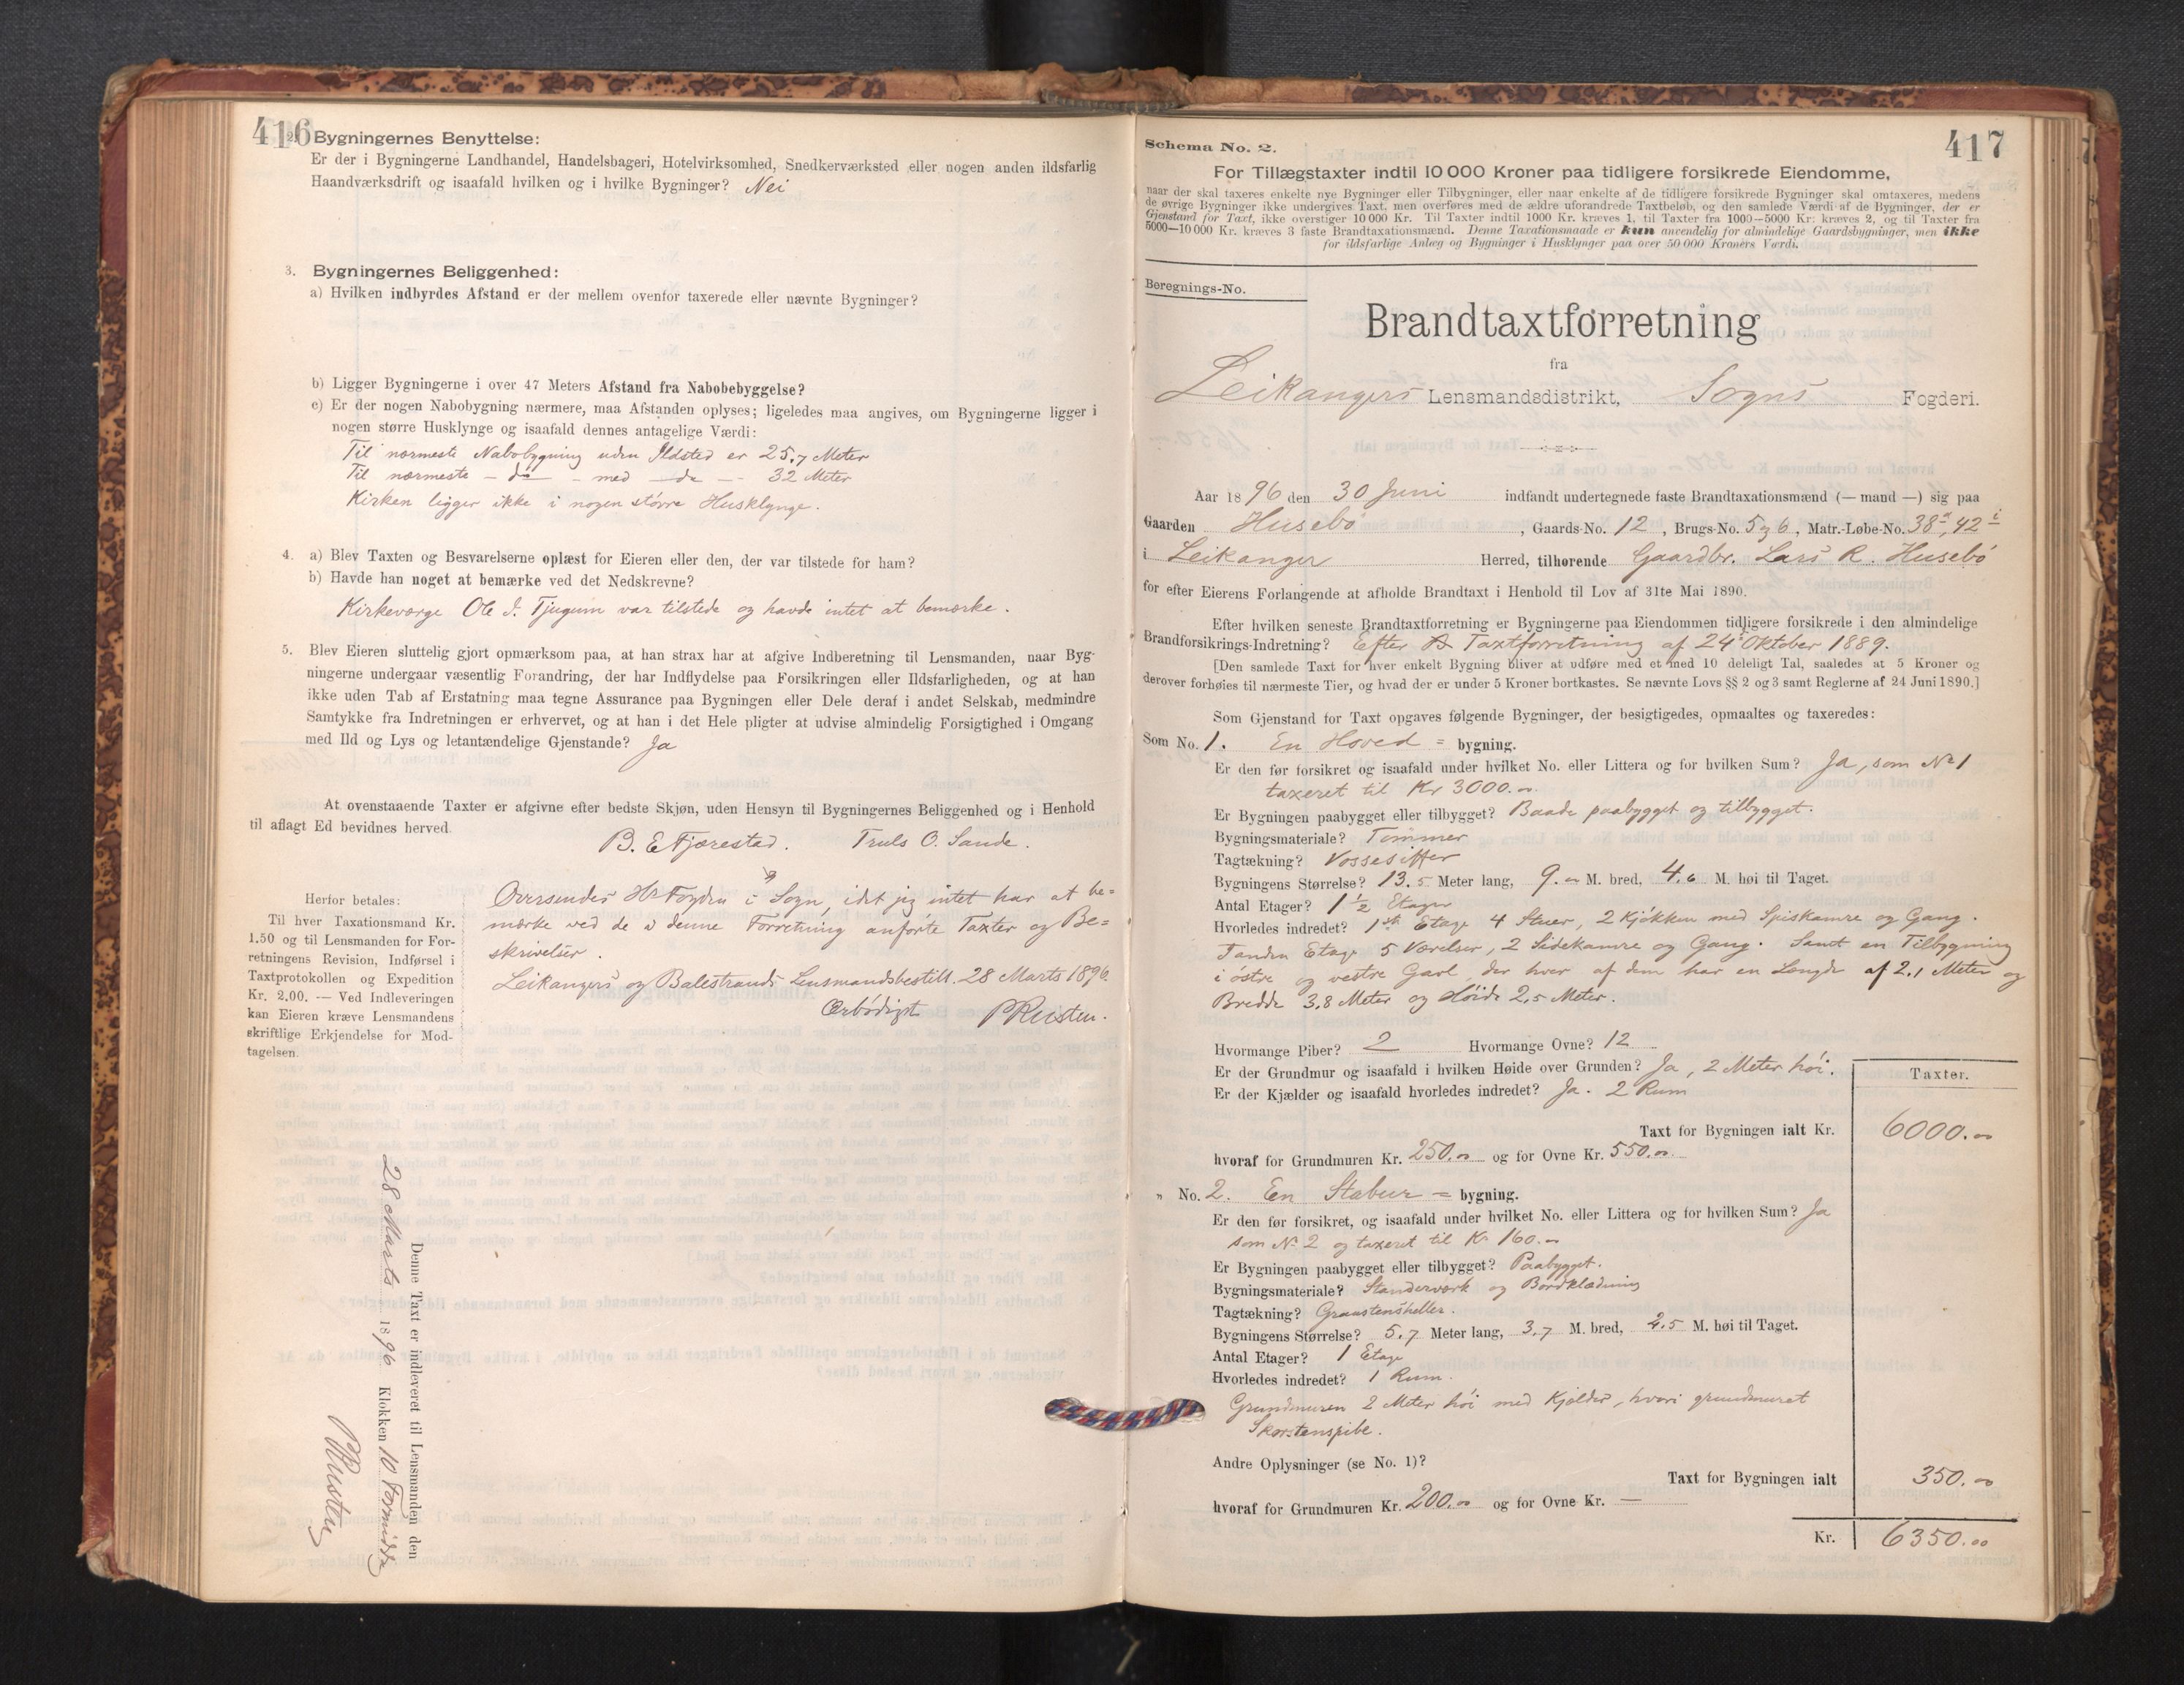 416
2. Bygningernes Benyttelse:
Er der i Bygningerne Landhandel, Handelsbageri, Hotelvirksomhed, Snedkerværksted eller nogen anden ildsfarlig
Haandværksdrift og isaafald hvilken og i hvilke Bygninger? Nei
3. Bygningernes Beliggenhed:
a) Hvilken indbyrdes Afstand er der mellem ovenfor taxerede eller nævnte Bygninger?
b) Ligger Bygningerne i over 47 Meters Afstand fra Nabobebyggelse?
c) Er der nogen Nabobygning nærmere, maa Afstanden oplyses; ligeledes maa angives, om Bygningerne ligger i
nogen større Husklynge og isaafald dennes antagelige Værdi:
Til nærmeste Nabobygning uden Ildsted er 25,7 Meter
Til nærmeste – do – med – do – 32 Meter
Kirken ligger ikke i nogen større Husklynge.
4. a) Blev Taxten og Besvarelserne oplæst for Eieren eller den, der var tilstede for ham?
b) Havde han noget at bemærke ved det Nedskrevne?
Kirkeværge Ole J. Tjugum var tilstede og havde intet at bemærke.
5. Blev Eieren sluttelig gjort opmærksom paa, at han strax har at afgive Indberetning til Lensmanden, naar Byg-
ningerne undergaar væsentlig Forandring, der har Indflydelse paa Forsikringen eller Ildsfarligheden, og at han
ikke uden Tab af Erstatning maa tegne Assurance paa Bygningen eller Dele deraf i andet Selskab, medmindre
Samtykke fra Indretningen er erhvervet, og at han i det Hele pligter at udvise almindelig Forsigtighed i Omgang
med Ild og Lys og letantændelige Gjenstande? Ja
At ovenstaaende Taxter er afgivne efter bedste Skjøn, uden Hensyn til Bygningernes Beliggenhed og i Henhold
til aflagt Ed bevidnes herved.
B. E Fjærestad. Truls O. Sande.
Herfor betales:
Til hver Taxationsmand Kr.
1.50 og til Lensmanden for For-
retningens Revision, Indførsel i
Taxtprotokollen og Expedition
Kr. 2.00. — Ved Indleveringen
kan Eieren kræve Lensmandens
skriftlige Erkjendelse for Mod-
tagelsen.
Oversendes Hr Fogden i Sogn, idet jeg intet har at be=
mærke ved de i denne Forretning anførte Taxter og Be=
skrivelser.
Leikangers og Balestrands Lensmandsbestill. 28 Marts 1896.
Ærbødigst PRusten.
Denne Taxt er indleveret til Lensmanden den
28 Marts 1896. Klokken 10 Formiddg
PRusten
417
Schema No. 2.
For Tillægstaxter indtil 10 000 Kroner paa tidligere forsikrede Eiendomme,
naar der skal taxeres enkelte nye Bygninger eller Tilbygninger, eller naar enkelte af de tidligere forsikrede Bygninger skal omtaxeres, medens
de øvrige Bygninger ikke undergives Taxt, men overføres med de ældre uforandrede Taxtbeløb, og den samlede Værdi af de Bygninger, der er
Gjenstand for Taxt, ikke overstiger 10 000 Kr. Til Taxter indtil 1000 Kr. kræves 1, til Taxter fra 1000—5000 Kr. kræves 2, og til Taxter fra
5000—10 000 Kr. kræves 3 faste Brandtaxationsmænd. Denne Taxationsmaade er kun anvendelig for almindelige Gaardsbygninger, men ikke
for ildsfarlige Anlæg og Bygninger i Husklynger paa over 50 000 Kroners Værdi.
Beregnings-No.
Brandtaxtforretning
fra
Leikangers Lensmandsdistrikt, Sogns Fogderi.
Aar 1896 den 30 Juni indfandt undertegnede faste Brandtaxationsmænd (— mand —) sig paa
Gaarden Husebø, Gaards-No. 12, Brugs-No. 5 og 6, Matr.-Løbe-No. 38a, 42i
i Leikanger Herred, tilhørende Gaardbr. Lars R. Husebø
for efter Eierens Forlangende at afholde Brandtaxt i Henhold til Lov af 31te Mai 1890.
Efter hvilken seneste Brandtaxtforretning er Bygningerne paa Eiendommen tidligere forsikrede i den almindelige
Brandforsikrings-Indretning? Efter Taxtforretning af 24 Oktober 1889.
[Den samlede Taxt for hver enkelt Bygning bliver at udføre med et med 10 deleligt Tal, saaledes at 5 Kroner og
derover forhøies til nærmeste Tier, og hvad der er under 5 Kroner bortkastes. Se nævnte Lovs §§ 2 og 3 samt Reglerne af 24 Juni 1890.]
Som Gjenstand for Taxt opgaves følgende Bygninger, der besigtigedes, opmaaltes og taxeredes:
Som No. 1. En Hoved = bygning.
Er den før forsikret og isaafald under hvilket No. eller Littera og for hvilken Sum? Ja, som No 1
taxeret til Kr 3000.00
Er Bygningen paabygget eller tilbygget? Baade paabygget og tilbygget.
Bygningsmateriale? Tømmer
Tagtækning? Vosseskiffer
Bygningens Størrelse? 13.5 Meter lang, 9.00 M. bred, 4.6 M. høi til Taget.
Antal Etager? 1 1/2 Etager
Hvorledes indredet? 1ste Etage 4 Stuer, 2 Kjøkken med Spiskamre og Gang.
Anden Etage 5 Værelser, 2 Sidekamre og Gang. Samt en Tilbygning
i østre og vestre Gavl, der hver af dem har en Længde af 2.1 Meter og
Bredde 3.8 Meter og Høide 2.5 Meter.
Hvormange Piber? 2 Hvormange Ovne? 12
Er der Grundmur og isaafald i hvilken Høide over Grunden? Ja, 2 Meter høi.
Er der Kjælder og isaafald hvorledes indredet? Ja. 2 Rum
Taxter.
Taxt for Bygningen ialt Kr. 6000.00
hvoraf for Grundmuren Kr. 250.00 og for Ovne Kr. 550.00
" No. 2. En Stabur = bygning.
Er den før forsikret, og isaafald under hvilket No. eller Littera og for hvilken Sum? Ja
som No 2 og taxeret til Kr 160.00
Er Bygningen paabygget eller tilbygget? Paabygget.
Bygningsmateriale? Standerværk og Bordklædning
Tagtækning? Graastensheller.
Bygningens Størrelse? 5.7 Meter lang, 3.7 M. bred, 2.5 M. høi til Taget.
Antal Etager? 1 Etage
Hvorledes indredet? 1 Rum.
Grundmuren 2 Meter høi med Kjælder, hvori grundmuret
Skorstenspibe.
Andre Oplysninger (se No. 1)?
Taxt for Bygningen ialt 350.00
hvoraf for Grundmuren Kr. 200.00 og for Ovne Kr. —
Kr. 6350.00